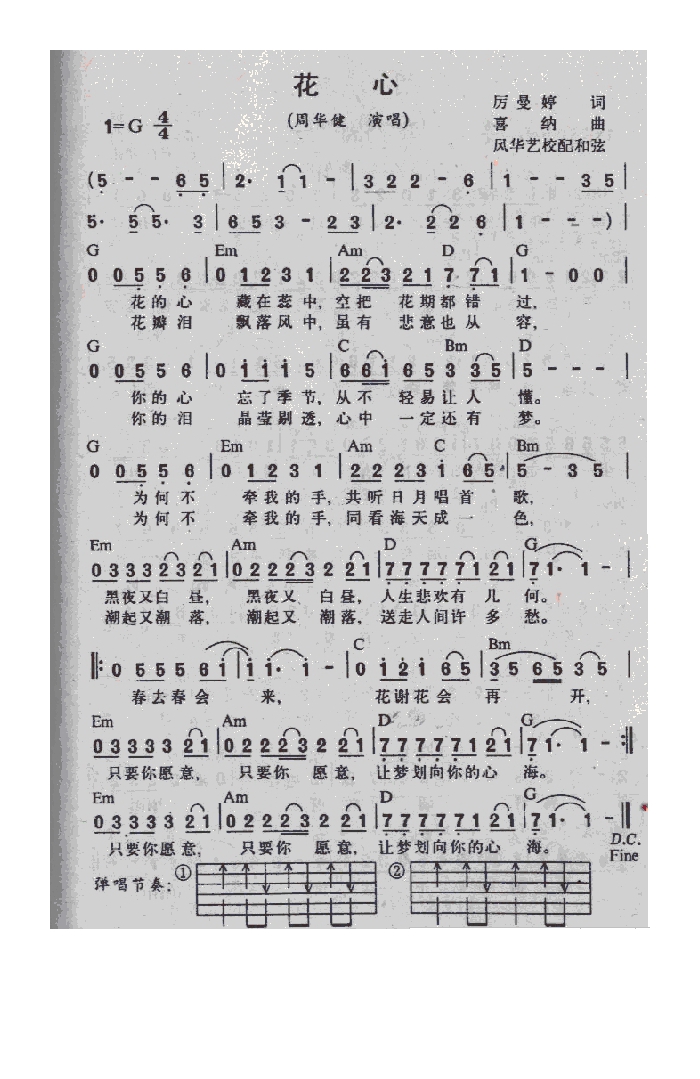 花 心
(周华健 演唱)
厉曼婷 词
1=G 4/4
喜纳 曲
风华艺校配和弦
(5 - - 6 5 | 2· 1 1 - | 3 2 2 - 6 | 1 - - 3 5 |
5· 5 5· 3 | 6 5 3 - 2 3 | 2· 2 2 6 | 1 - - - ) |
G Em Am D G
0 0 5 5 6 | 0 1 2 3 1 | 2 2 2 3 2 1 7 · 7 1 | 1 - 0 0 |
花的心 藏在蕊中, 空把 花期都错 过,
花瓣泪 飘落风中, 虽有 悲意也从 容,
G C Bm D
0 0 5 5 6 | 0 1 1 1 5 | 6 6 1 6 5 3 3 5 | 5 - - - |
你的心 忘了季节, 从不 轻易让人 懂。
你的泪 晶莹剔透, 心中 一定还有 梦。
G Em Am C Bm
0 0 5 5 6 | 0 1 2 3 1 | 2 2 2 3 1 6 5 | 5 - 3 5 |
为何不 牵我的手, 共听日月唱首 歌,
为何不 牵我的手, 同看海天成一 色,
Em Am D G
0 3 3 3 2 3 2 1 | 0 2 2 2 3 2 2 1 | 7 7 7 7 7 1 2 1 | 7 1· 1 - |
黑夜又白 昼, 黑夜又 白昼, 人生悲欢有 几 何。
潮起又潮 落, 潮起又 潮落, 送走人间许 多 愁。
C Bm
‖: 0 5 5 5 6 1 | 1 1· 1 - | 0 1 2 1 6 5 | 3 5 6 5 3 5 |
春去春会 来, 花谢花会 再 开,
Em Am D G
0 3 3 3 3 2 1 | 0 2 2 2 3 2 2 1 | 7 7 7 7 7 1 2 1 | 7 1· 1 - :‖
只要你愿意, 只要你 愿意, 让梦划向你的心 海。
Em Am D G
0 3 3 3 3 2 1 | 0 2 2 2 3 2 2 1 | 7 7 7 7 7 1 2 1 | 7 1· 1 - ‖
D.C.
只要你愿意, 只要你 愿意, 让梦划向你的心 海。 Fine
弹唱节奏: ① ②